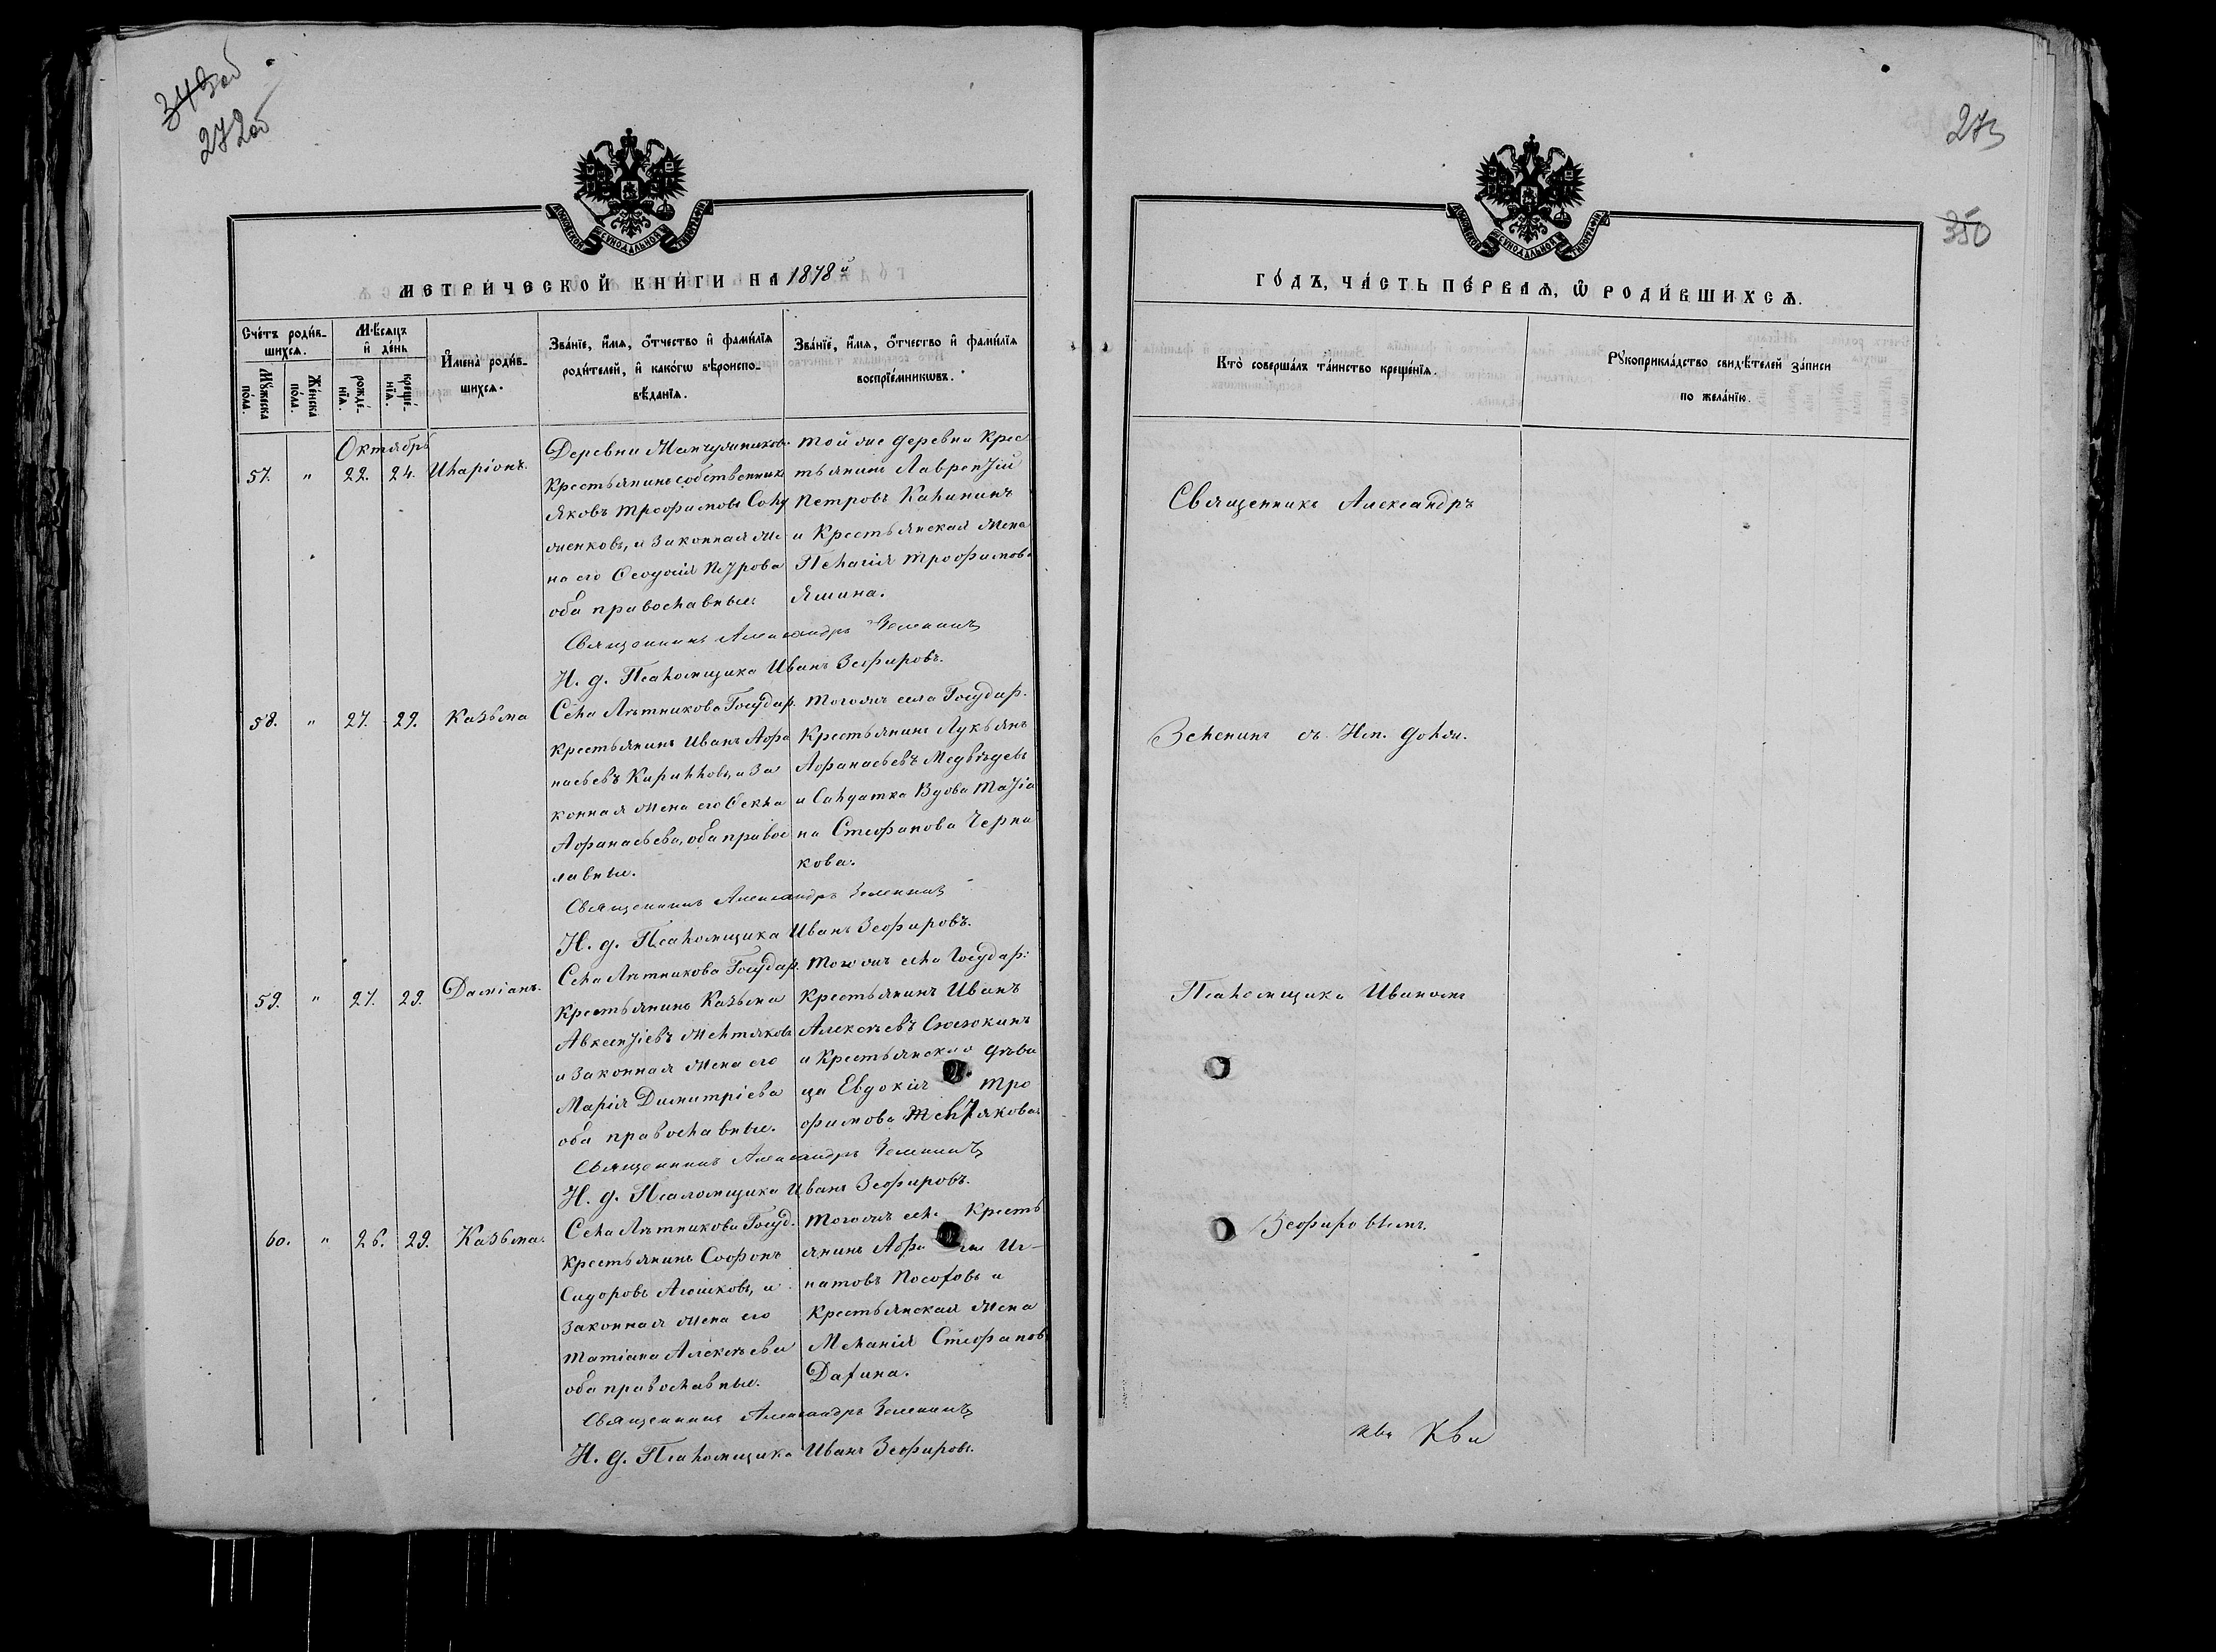 349об
272об
МЕТРИ́ЧЕСКОЙ КНИ́ГИ НА 1878й
Сче́тъ роди́в-
шихсѧ.
Мѣ́сяцъ
и҆ де́нь
Мꙋ́жеска
по́ла.
Же́нска
по́ла.
рожде́-
нїѧ.
креще́-
нїѧ.
И҆мена̀ роди́в-
шихсѧ.
Зва́нїе, и҆́мѧ, ѻ҆́тчество и҆ фами́лїѧ
роди́телей, и҆ како́гѡ вѣроиспо-
вѣ́данїѧ.
Зва́нїе, и҆́мѧ, ѻ҆́тчество и҆ фами́лїѧ
воспрїе́мникѡвъ.
Октябрь
57. " 22. 24. Иларіонъ.
Деревни
Крестьянинъ собственникъ
Яковъ Трофимовъ Солу
женковъ, и законная же
на его Ѳеодосія Петрова
оба православные.
Той же деревни Крес
тьянинъ Лаврентій
Петровъ Калининъ
и Крестьянская жена
Пелагія Трофимова
Яшина.
Священникъ Александръ Зеленинъ
И. д. Псаломщика Иванъ Зефировъ.
58. " 27. 29. Казьма
Села Лѣтникова Государ.
крестьянинъ Иванъ Афа
насьевъ Кирилловъ, и за
конная жена его Ѳекла
Афанасьева, оба правос
лавные.
Тогожъ села Государ.
Крестьянинъ Лукьянъ
Афанасьевъ Медвѣдевъ
и Салдатка Вдова Татіа
на Стефанова Черна
кова.
Священникъ Александръ Зеленинъ
И. д. Псаломщика Иванъ Зефировъ.
59. " 27. 29. Даміанъ.
Села Лѣтникова Государ.
крестьянинъ Казьма
Авксентіевъ Желтяковъ
и законная жена его
Марія Димитріева
оба православные.
Тогожъ села Государ.
Крестьянинъ Иванъ
Алексѣевъ Сюсюкинъ
и крестьянская дѣви
ца Евдокія Тро
фимова Желтякова
Священникъ Александръ Зеленинъ
И. д. Псаломщика Иванъ Зефировъ.
60. " 26. 29. Казьма.
Села Лѣтникова Госуд.
крестьянинъ Софонъ
Сидоровъ Алешковъ, и
законная жена его
Татіана Алексѣева
оба православные.
Тогожъ села Кресть
янинъ Иг-
натовъ Носоровъ и
Крестьянская жена
Меланія Стефанов
Дарина.
Священникъ Александръ Зеленинъ
И. д. Псаломщика Иванъ Зефировъ.
273
350
ГО́ДЪ, ЧА́СТЬ ПЕ́РВАѦ, Ѡ҆ РОДИ́ВШИХСѦ.
Кто̀ соверша́лъ та́инство креще́нїѧ.
Рꙋкоприкла́дство свидѣ́телей за́писи
по жела́нїю.
Священникъ Александръ
Зеленинъ съ Исп. долж.
Псаломщика Иваномъ
Зефировымъ.